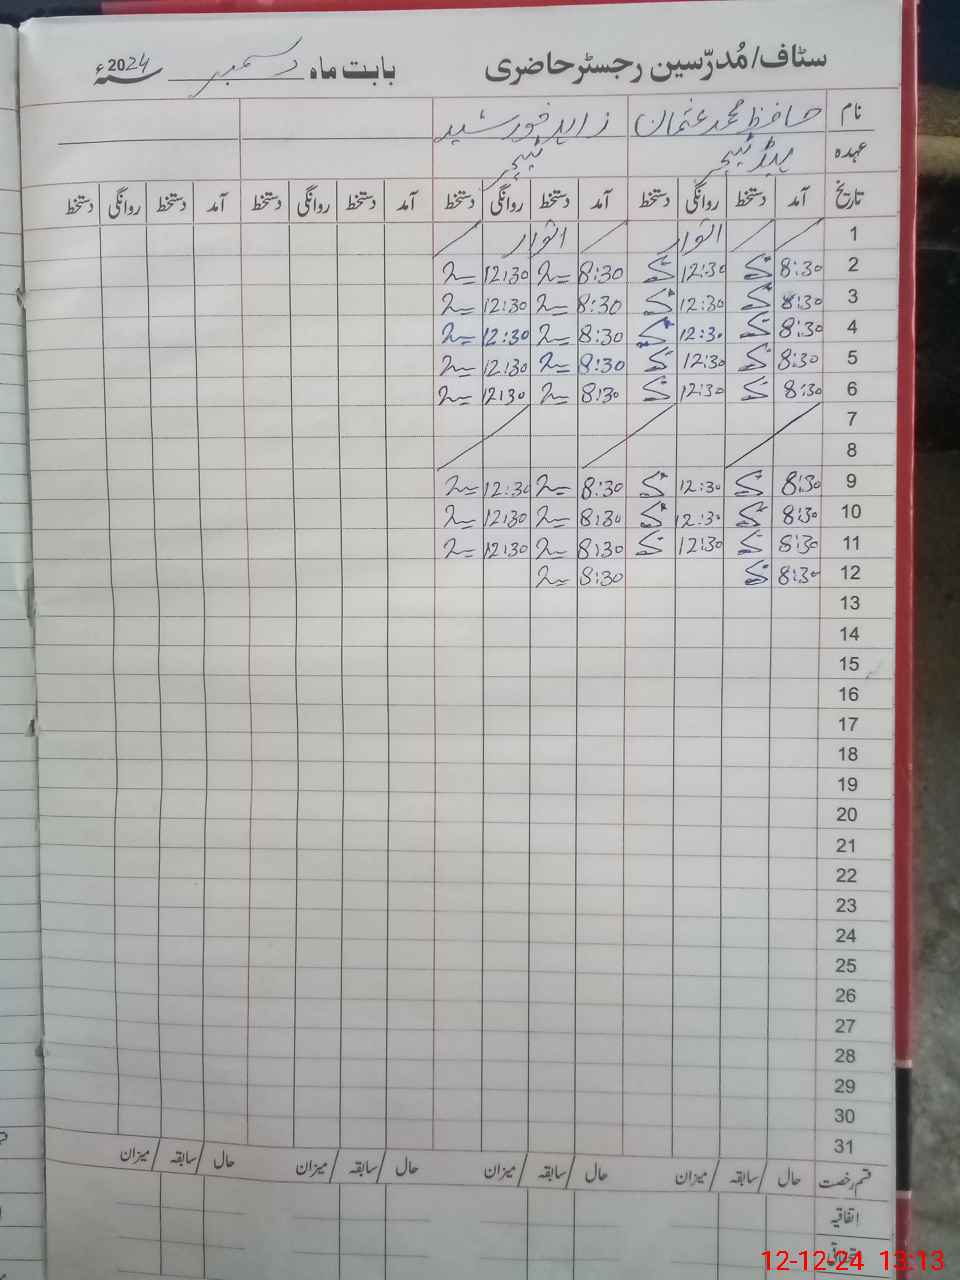 سٹاف/مُدرّسین رجسٹر حاضری بابت ماہ دسمبر سنہ 2024ء
نام حافظ محمد عثمان زاہد خورشید
عہدہ ہیڈ ٹیچر ٹیچر
تاریخ آمد دستخط روانگی دستخط آمد دستخط روانگی دستخط آمد دستخط روانگی دستخط آمد دستخط روانگی دستخط
1 اتوار اتوار
2 8:30 12:30 8:30 12:30
3 8:30 12:30 8:30 12:30
4 8:30 12:30 8:30 12:30
5 8:30 12:30 8:30 12:30
6 8:30 12:30 8:30 12:30
7
8
9 8:30 12:30 8:30 12:30
10 8:30 12:30 8:30 12:30
11 8:30 12:30 8:30 12:30
12 8:30 8:30
13
14
15
16
17
18
19
20
21
22
23
24
25
26
27
28
29
30
31
قسم رخصت حال / سابقہ / میزان حال / سابقہ / میزان حال / سابقہ / میزان حال / سابقہ / میزان
اتفاقیہ
12-12-24 13:13